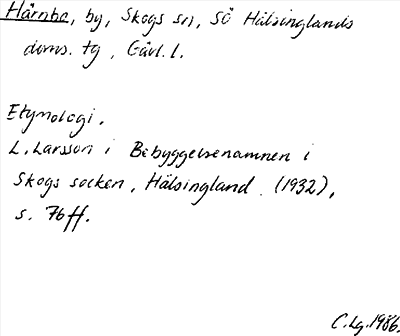 Hårnba, by, Skogs sn, SÖ Hälsinglands
doms. tg, Gävl. l.
Etymologi.
L. Larsson i Bebyggelsenamnen i
Skogs socken, Hälsingland (1932),
s. 76ff.
C.Lg.1986.